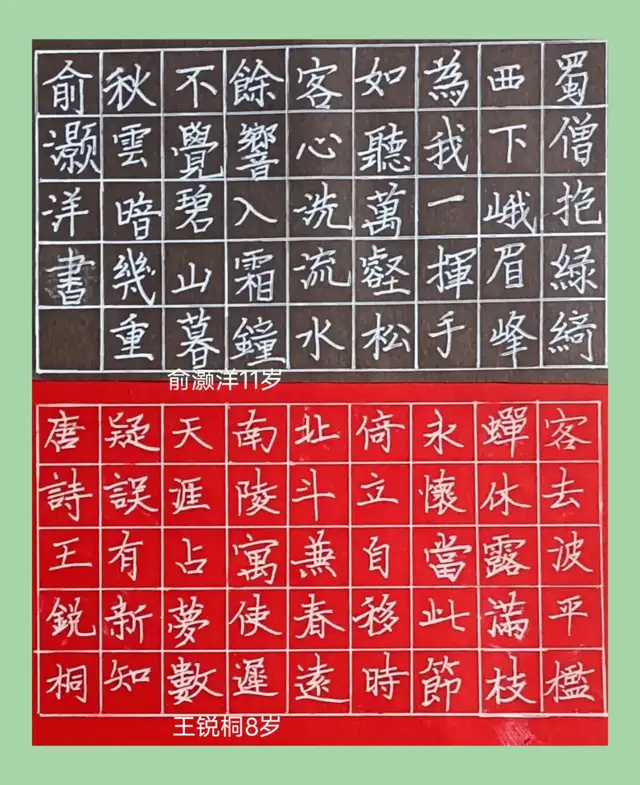 蜀僧抱緑綺
西下峨眉峰
為我一揮手
如聽萬壑松
客心洗流水
餘響入霜鐘
不覺碧山暮
秋雲暗幾重
俞灏洋書
俞灏洋11岁
客去波平檻
蟬休露滿枝
永懷當此節
倚立自移時
北斗兼春遠
南陵寓使遲
天涯占夢數
疑誤有新知
唐詩王鋭桐
王锐桐8岁